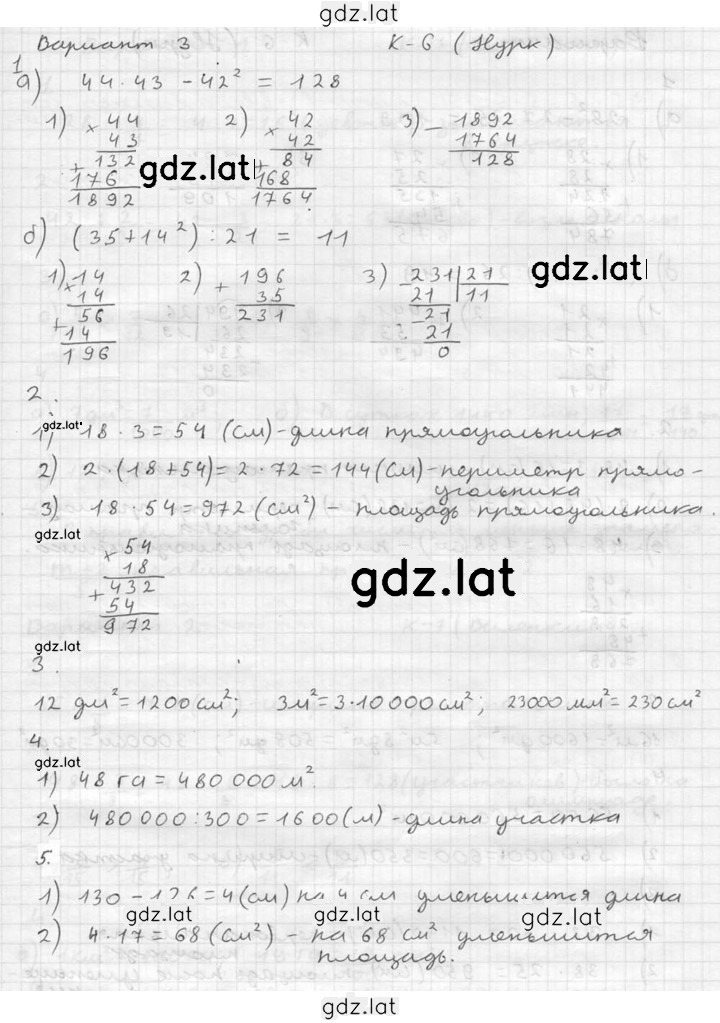 gdz.lat
Вариант 3 К-6 (Нурк)
1
а) 44·43 - 42² = 128
1) × 44 2) × 42 3) - 1892
43 42 1764
+ 132 + 84 128
176 168
1892 1764
gdz.lat
б) (35+14²) : 21 = 11
gdz.lat
1) × 14 2) + 196 3) - 231 | 21
14 35 21 11
+ 56 231 - 21
14 21
196 0
2.
gdz.lat
1) 18 · 3 = 54 (см) - длина прямоугольника
2) 2·(18+54) = 2·72 = 144 (см) - периметр прямо-
угольника
3) 18 · 54 = 972 (см²) - площадь прямоугольника.
× 54
18
+ 432
54
972
gdz.lat
gdz.lat
3.
12 дм² = 1200 см²; 3м² = 3·10 000 см²; 23000 мм² = 230 см²
4.
gdz.lat
1) 48 га = 480 000 м².
2) 480 000 : 300 = 1600 (м) - длина участка
5.
1) 130 - 126 = 4 (см) на 4 см уменьшится длина
gdz.lat gdz.lat gdz.lat
2) 4·17 = 68 (см²) - на 68 см² уменьшится
площадь.
gdz.lat